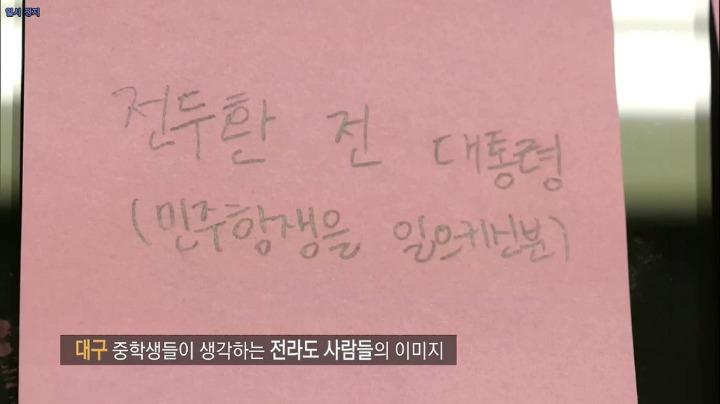 일시 정지
전두환 전 대통령
(민주항쟁을 일으키신분)
대구 중학생들이 생각하는 전라도 사람들의 이미지